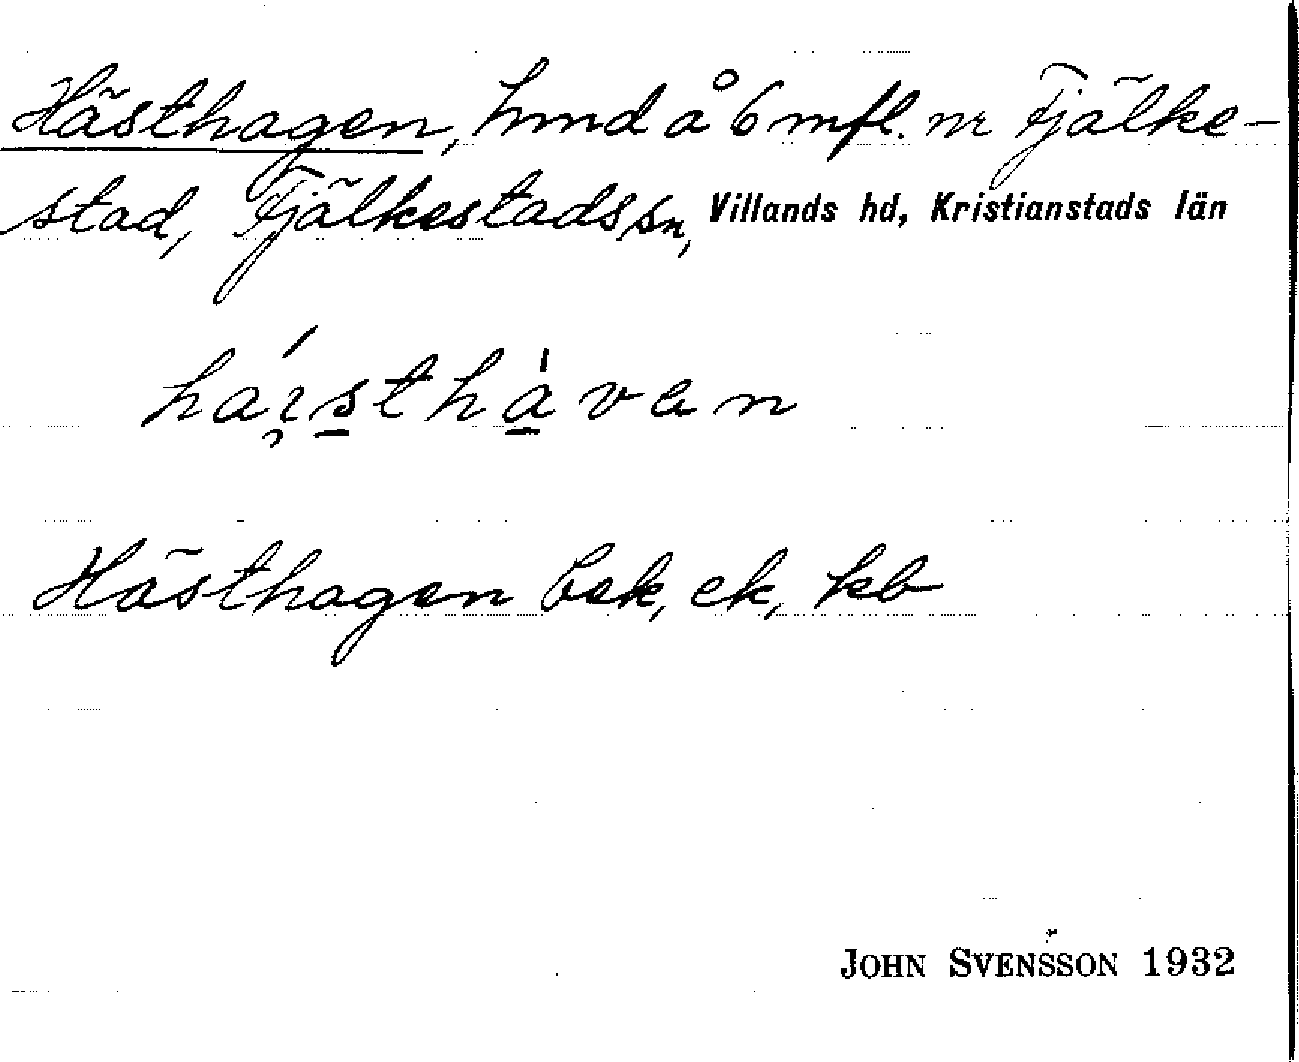 Hästhagen, hmd å 6 mfl. nr Fjälke-
stad, Fjälkestads sn, Villands hd, Kristianstads län
Hästhagen bek, ek, kb
JOHN SVENSSON 1932